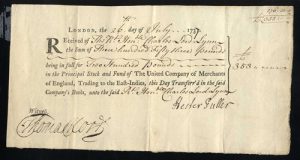 LONDON, the 26 day of July 1737
Received of The Rt. Honble. Charles Lord Lynn
the Sum of Three hundred fifty three Pounds
being in full for Two Hundred Pounds
in the Principal Stock and Fund of The United Company of Merchants
of England, Trading to the East-Indies, this Day Transferr'd in the said
Company's Books, unto the said Rt. Honble. Charles Lord Lynn
£353
Hester Fuller
Witness
Thomas